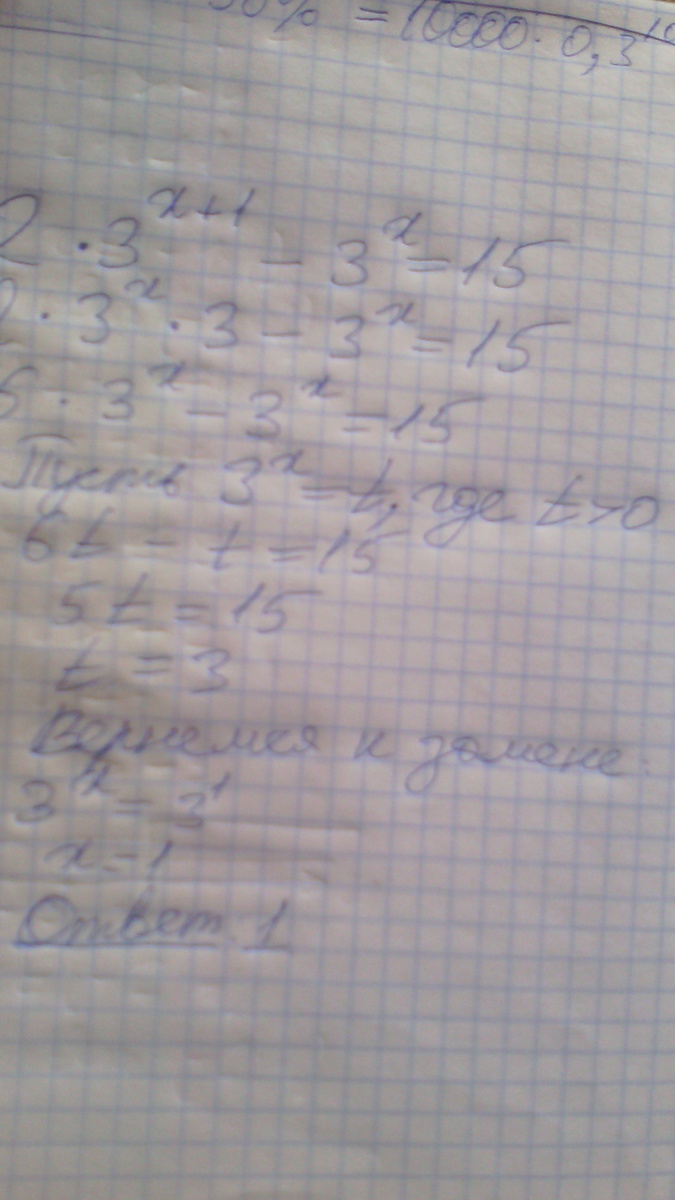 0% = 10000 · 0,3^10
2 · 3^x+1 - 3^x = 15
2 · 3^x · 3 - 3^x = 15
6 · 3^x - 3^x = 15
Пусть 3^x = t, где t > 0
6t - t = 15
5t = 15
t = 3
Вернемся к замене:
3^x = 3^1
x = 1
Ответ 1